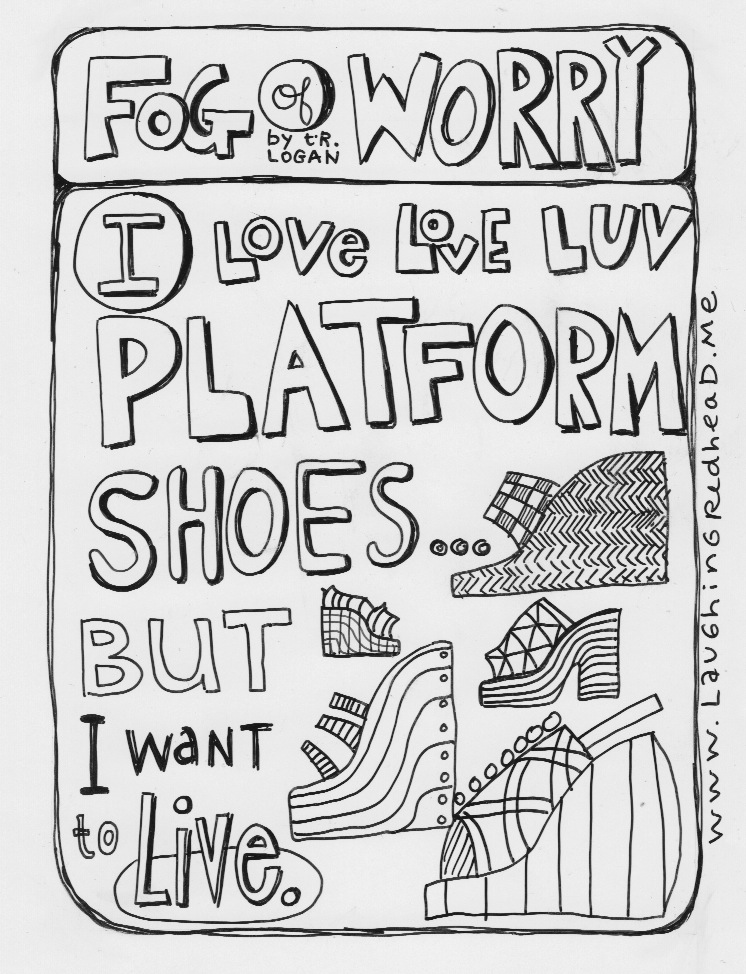 FOG of WORRY
by t.R.
LOGAN
I LOVe LOVE LUV
PLATFORM
SHOES...
BUT
I WaNT
to LiVe.
www.LaughingRedheaD.Me